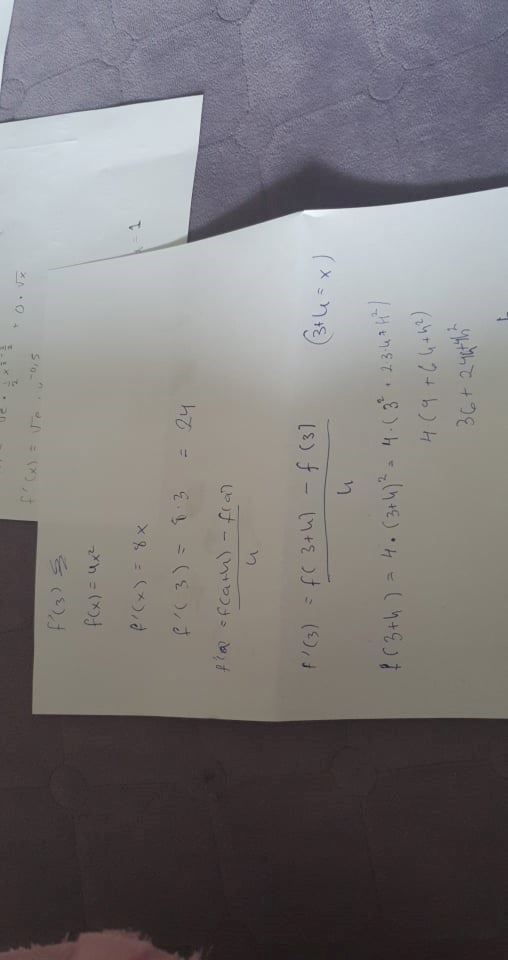 f'(x) =
+ 0 · √x
= 1
f'(3)
f(x) = 4x²
f'(x) = 8x
f'(3) = 8·3 = 24
f'(a) = f(a+h) - f(a)
h
f'(3) = f(3+h) - f(3) (3+h = x)
h
f(3+h) = 4·(3+h)² = 4·(3² + 2·3·h + h²)
4(9 + 6h + h²)
36 + 24h+4h²